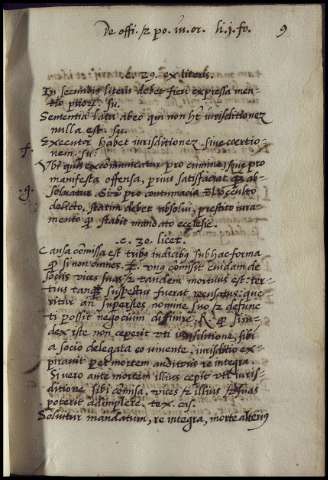 De offi. & po. iu. or. li. i. fo. 9
c. 29. ex literis.
In secundis literis debet fieri expressa men-
tio priorum. su.
Sententia lata ab eo qui non habet iurisdictionem
nulla est. su.
Executor habet iurisdictionem sine coertio-
nem. su.
f. Ubi quis excommunicatur pro crimine sive pro
manifesta offensa, prius satisfaciat quam ab-
g. solvatur. Si vero pro contumacia
delicto, statim debet absolvi, prestito iura-
mento quod stabit mandato ecclesie.
c. 30. licet.
Causa comissa est tribus iudicibus sub hac forma
quod si non omnes. &c. unus comisit cuidam de
sociis vices suas & tandem mortuus est: ter-
tius tanquam suspectus fuerat recusatus: que-
ritur an superstes nomine suo & defunc-
ti possit negocium diffinire. R. quod si iu-
dex iste non ceperit uti iurisdictione, sibi
a socio delegata eo vivente, iurisdictio ex-
piravit per mortem auditoris re integra.
Si vero ante mortem illius cepit uti iuris-
ditione sibi comissa, vices & illius & suas
poterit adimplere. tex.
Solvitur mandatum, re integra, morte alterius